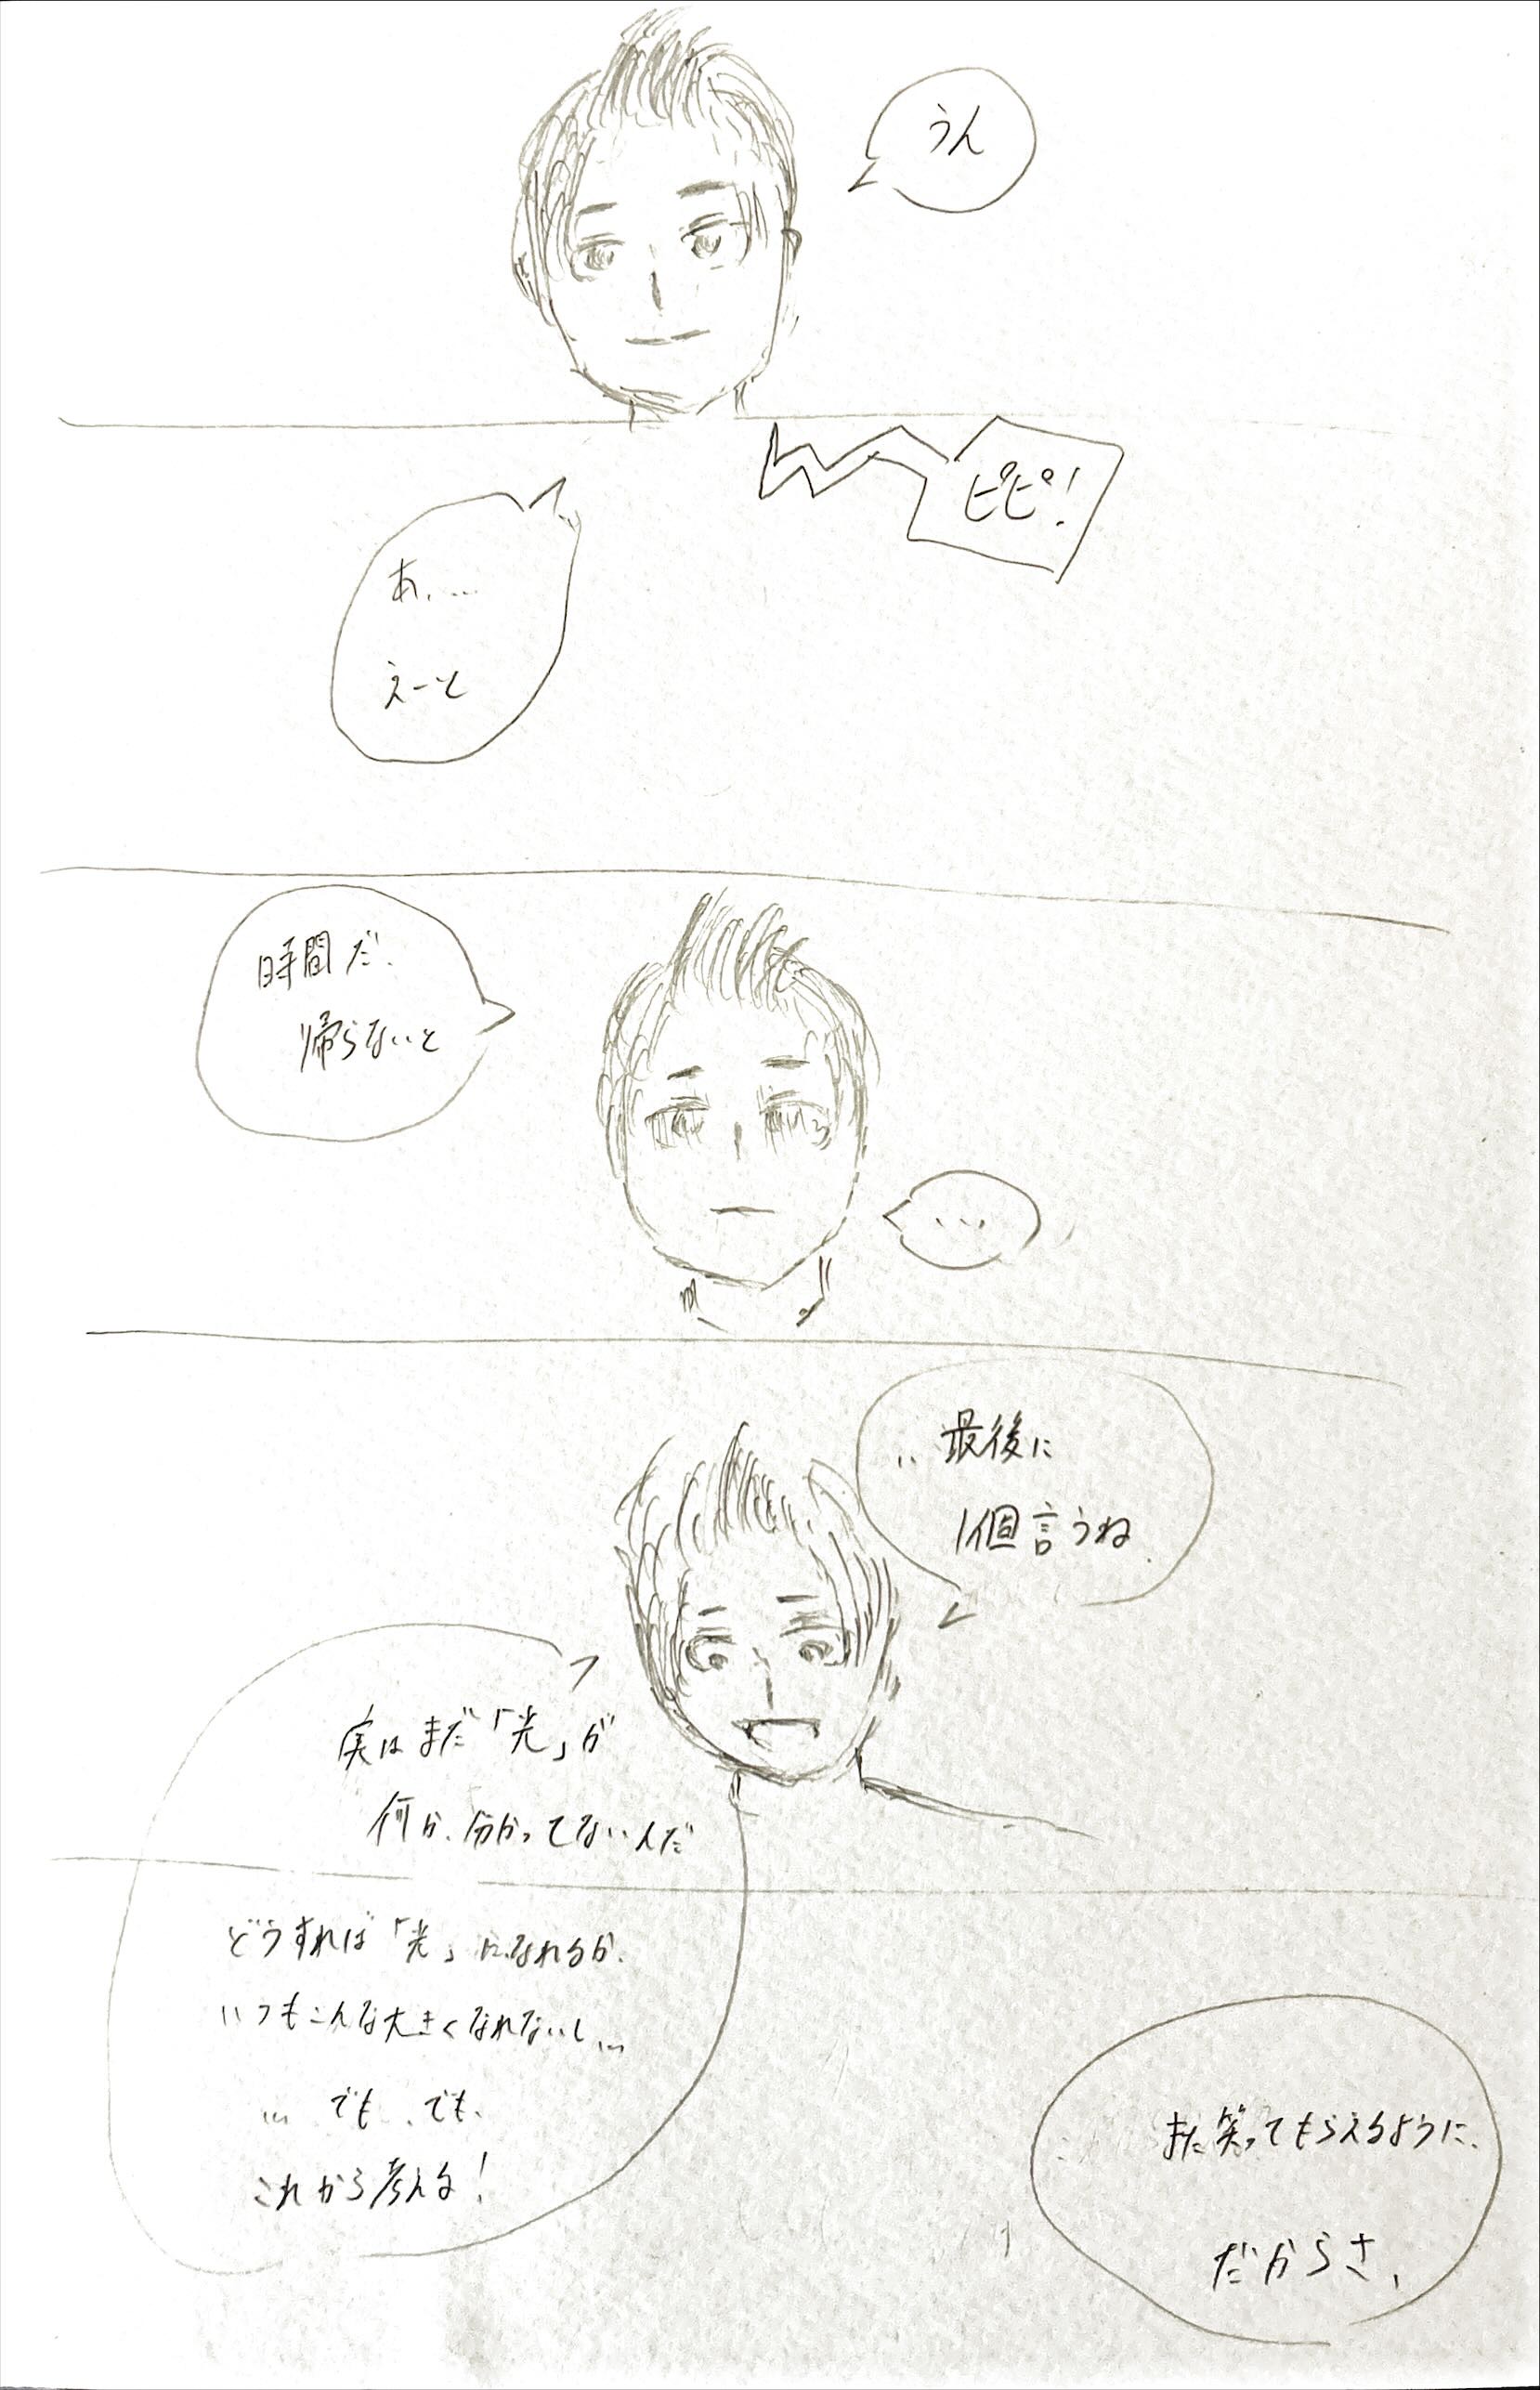 うん
ピピ!
あ、…
えーと
時間だ、
帰らないと
...
..最後に
1個言うね
実はまだ「光」が
何か、分かってないんだ
どうすれば「光」になれるか、
いつもこんな大きくなれないし…
… でも、でも、
これから考える!
また笑ってもらえるように、
だからさ、